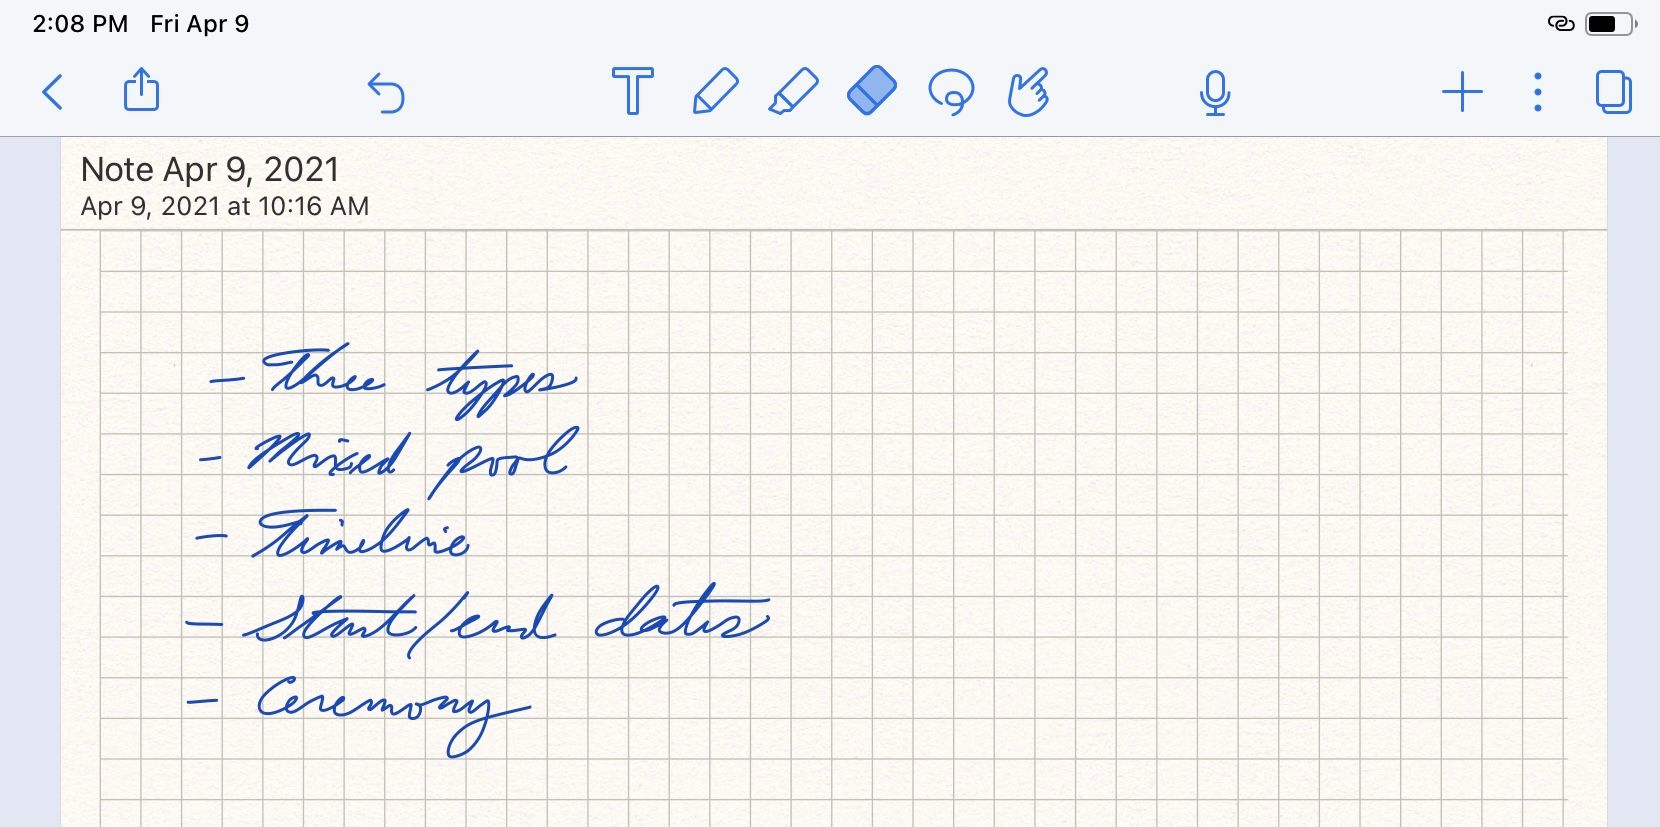 2:08 PM Fri Apr 9
Note Apr 9, 2021
Apr 9, 2021 at 10:16 AM
- Three types
- Mixed pool
- Timeline
- Start/end dates
- Ceremony